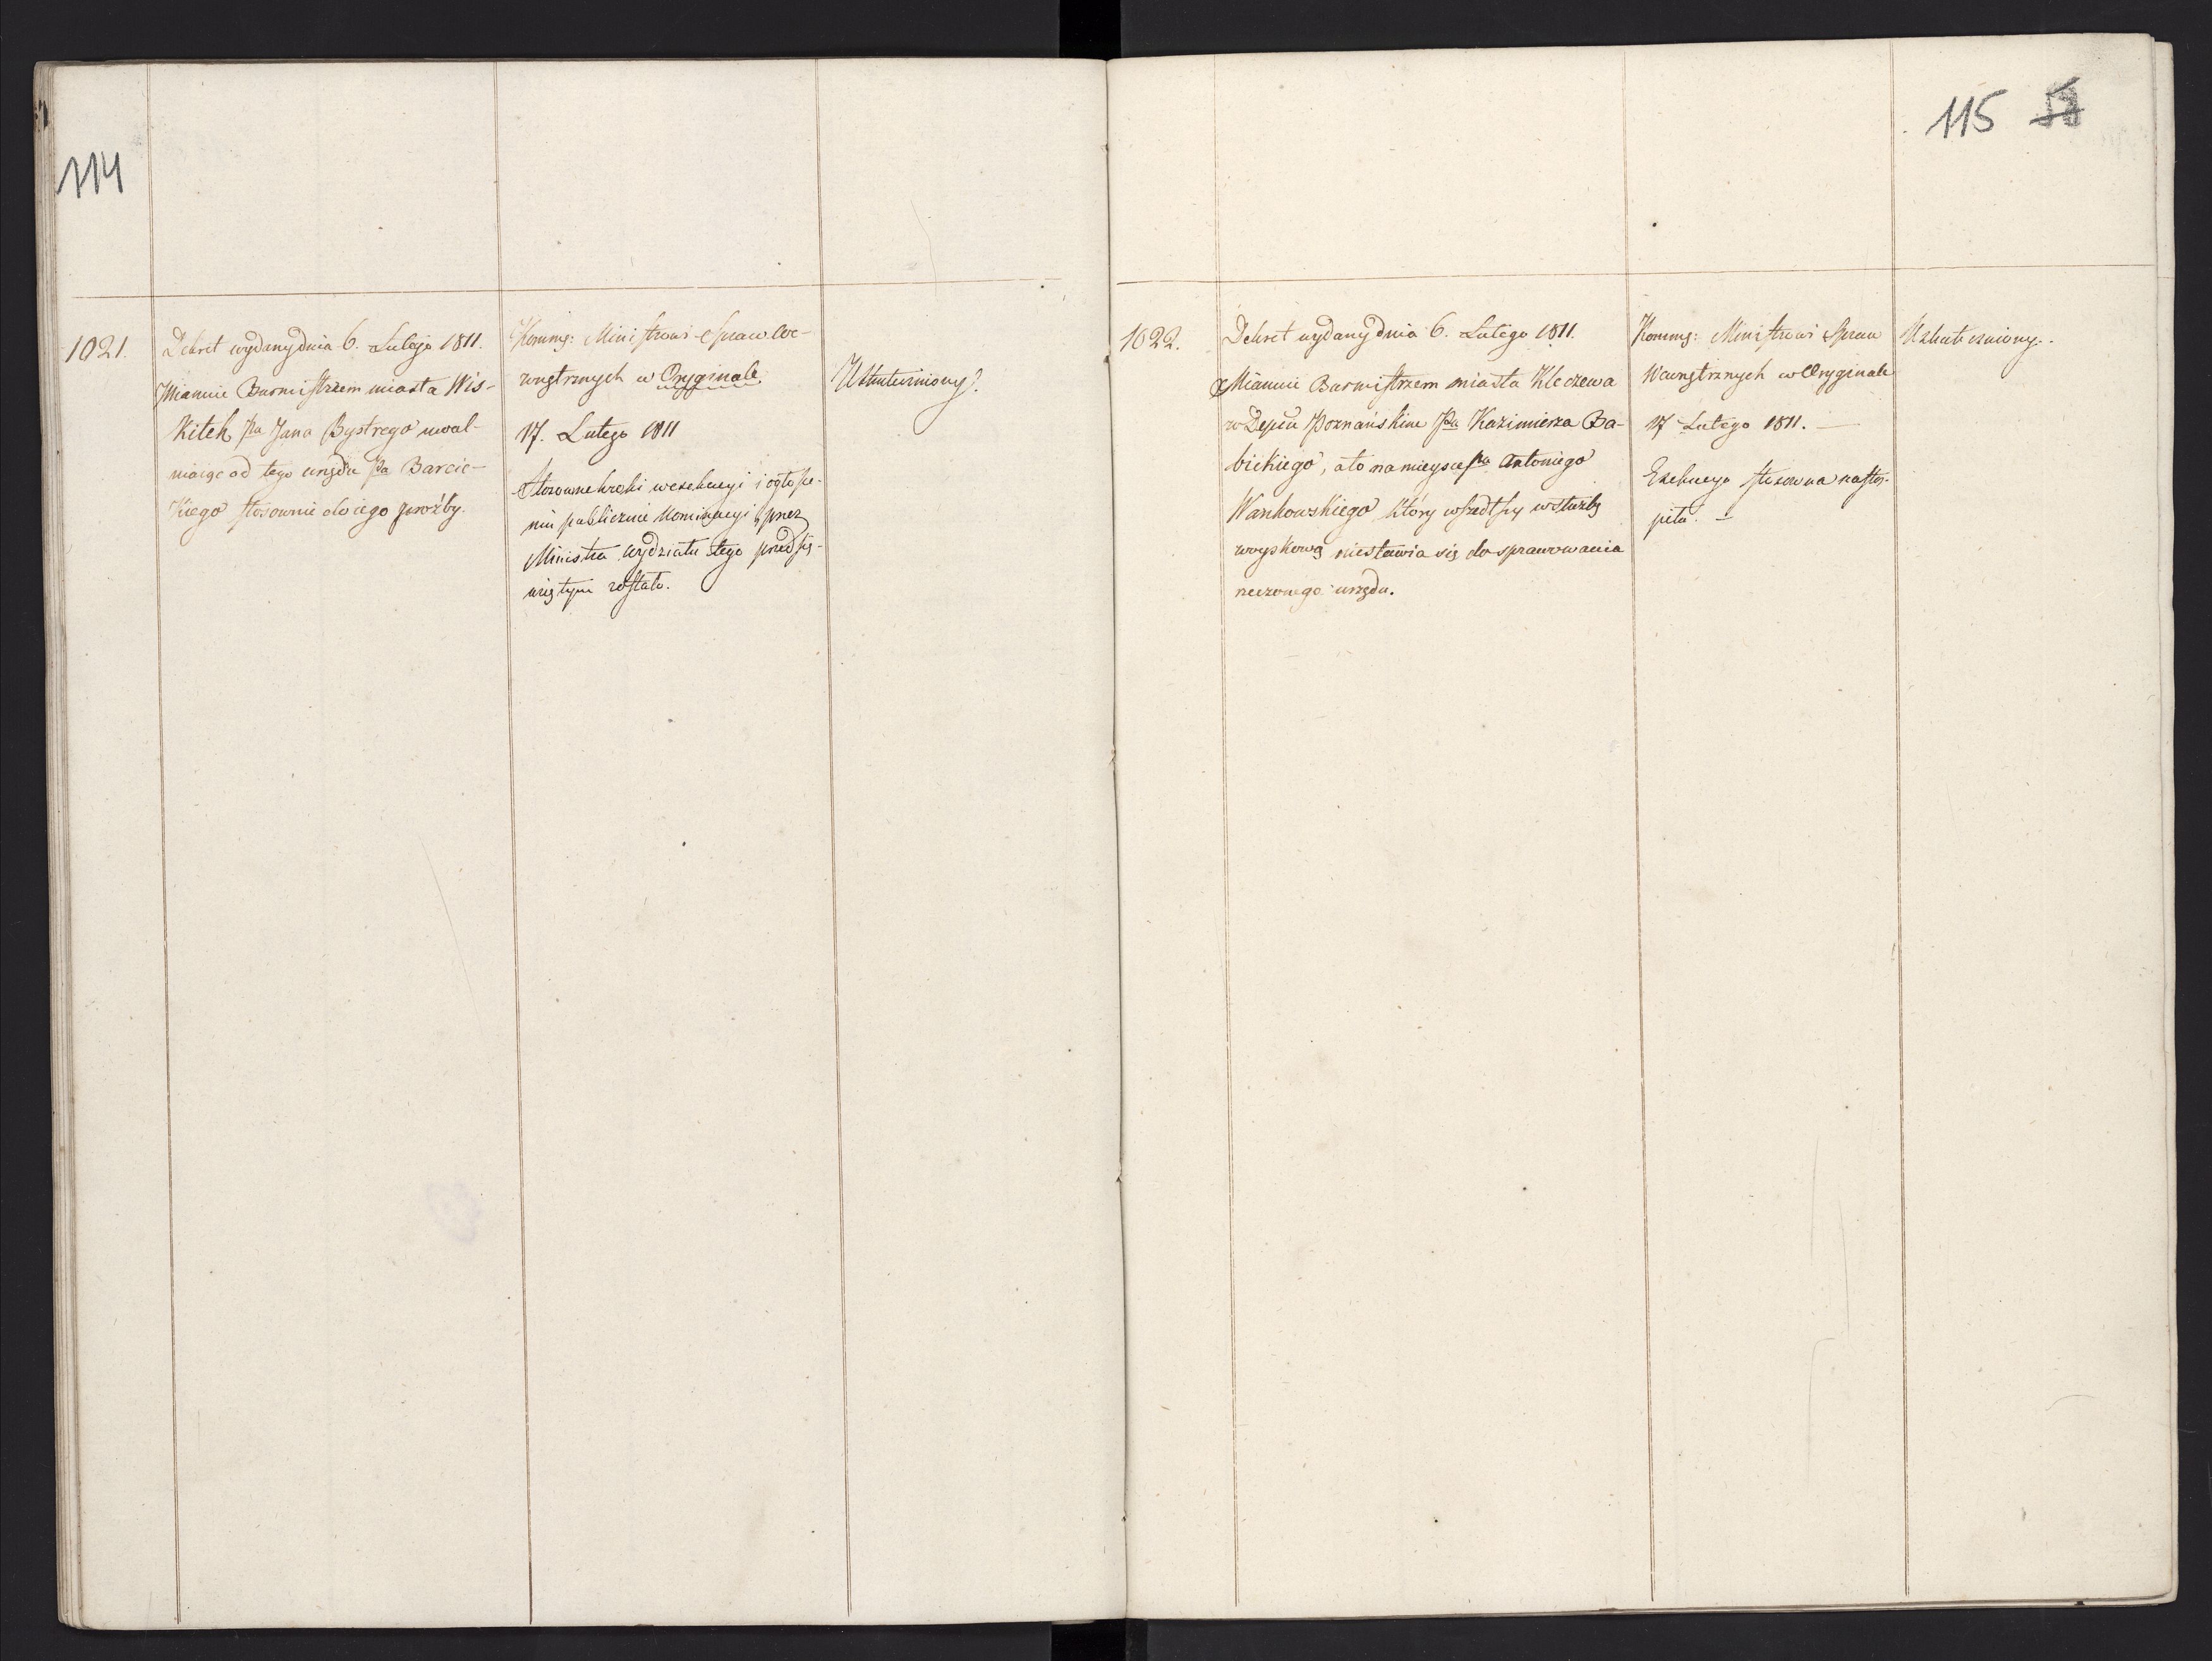 114
1021.
Dekret wydany dnia 6. Lutego 1811.
Mianuie Burmistrzem miasta Wis-
kitek Pa Jana Bystrego uwal-
niaiąc od tego urzędu Pa Barcic-
kiego stosownie do iego prozby.
Kommg: Ministrowi Spraw We-
wnętrznych w Oryginale
17. Lutego 1811
Stosowne kroki w exekucyi i ogłosze-
niu publicznie Nominacyi przez
Ministra wydziału tego przedsię-
wziętym zostało.
Uskuteczniony.
115
1022.
Dekret wydany dnia 6. Lutego 1811.
Mianuie Burmistrzem miasta Kleczewa
w Depcie Poznańskim Pa Kazimierza Ba-
bickiego, a to na mieysce Pa Antoniego
Wankowskiego który wszedłszy w służbę
woyskową niestawia się do sprawowania
rzeczonego urzędu.
Kommg: Ministrowi Spraw
Wewnętrznych w Oryginale
17 Lutego 1811. —
Exekucya stosowna nastą-
piła. —
Uskuteczniony.